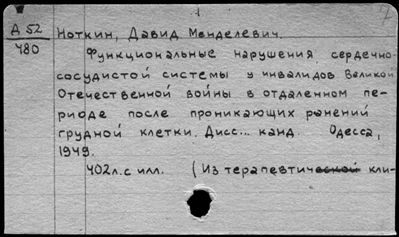 А 52 Ноткин, Давид Менделевич.
480 Функциональные нарушения сердечно-
сосудистой системы у инвалидов Великой
Отечественной войны в отдаленном пе-
риоде после проникающих ранений
грудной клетки. Дисс... канд. Одесса,
1949.
402л. с илл. (Из терапевтической кли-